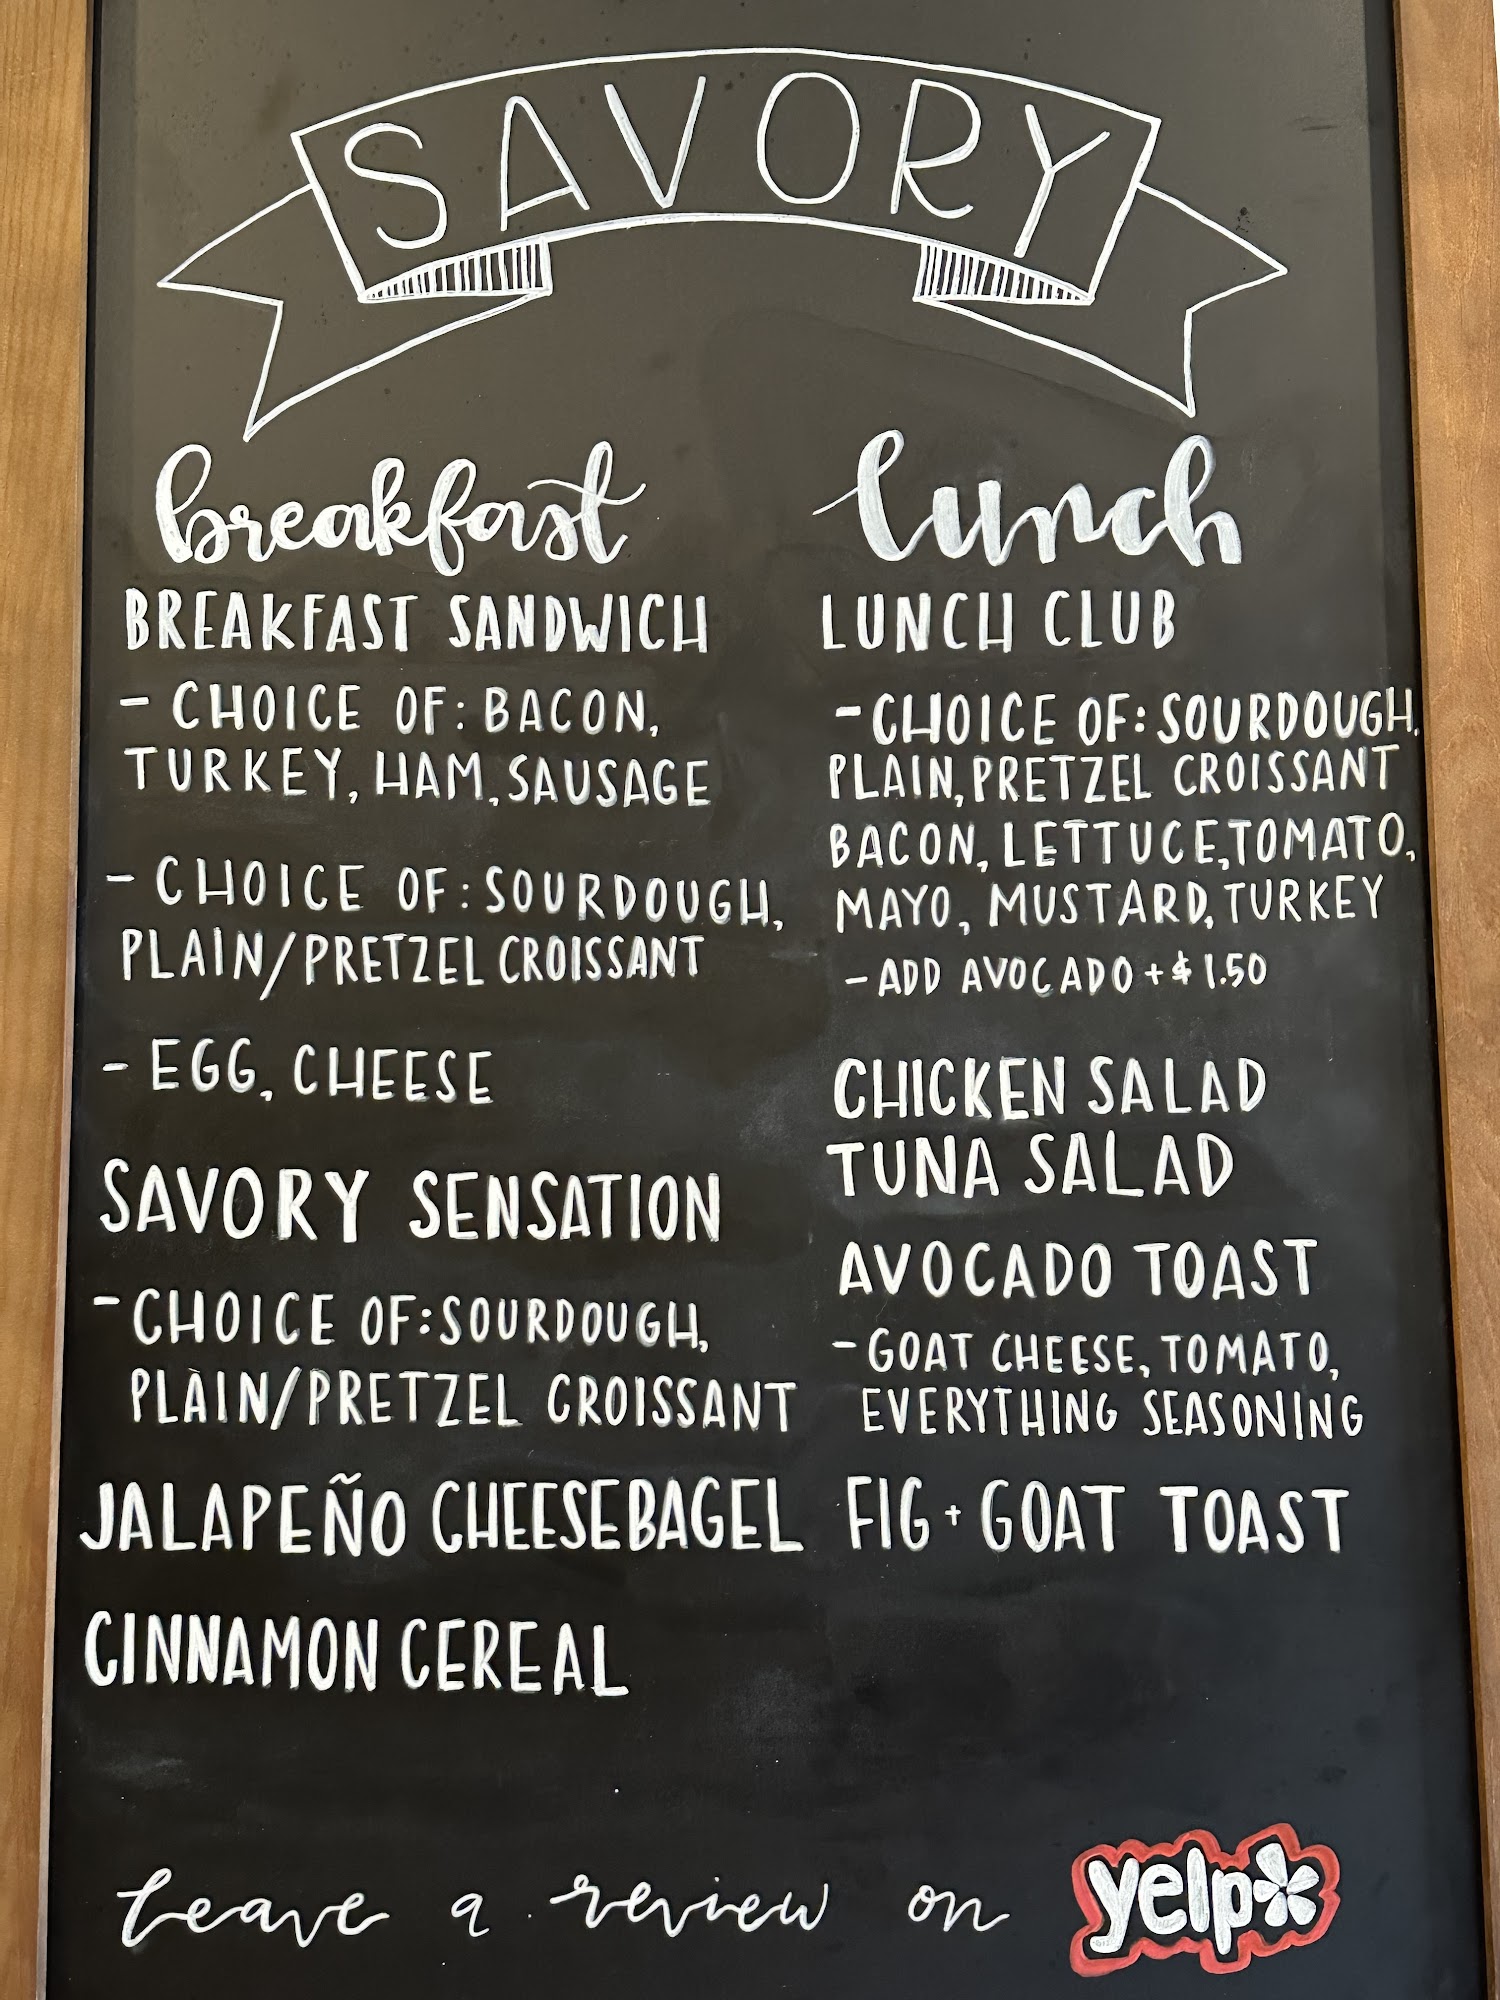 SAVORY
breakfast
BREAKFAST SANDWICH
- CHOICE OF: BACON,
TURKEY, HAM, SAUSAGE
- CHOICE OF: SOURDOUGH,
PLAIN/PRETZEL CROISSANT
- EGG, CHEESE
SAVORY SENSATION
- CHOICE OF: SOURDOUGH,
PLAIN/PRETZEL CROISSANT
JALAPEÑO CHEESEBAGEL
CINNAMON CEREAL
lunch
LUNCH CLUB
- CHOICE OF: SOURDOUGH,
PLAIN, PRETZEL CROISSANT
BACON, LETTUCE, TOMATO,
MAYO, MUSTARD, TURKEY
- ADD AVOCADO + $1.50
CHICKEN SALAD
TUNA SALAD
AVOCADO TOAST
- GOAT CHEESE, TOMATO,
EVERYTHING SEASONING
FIG + GOAT TOAST
leave a review on yelp